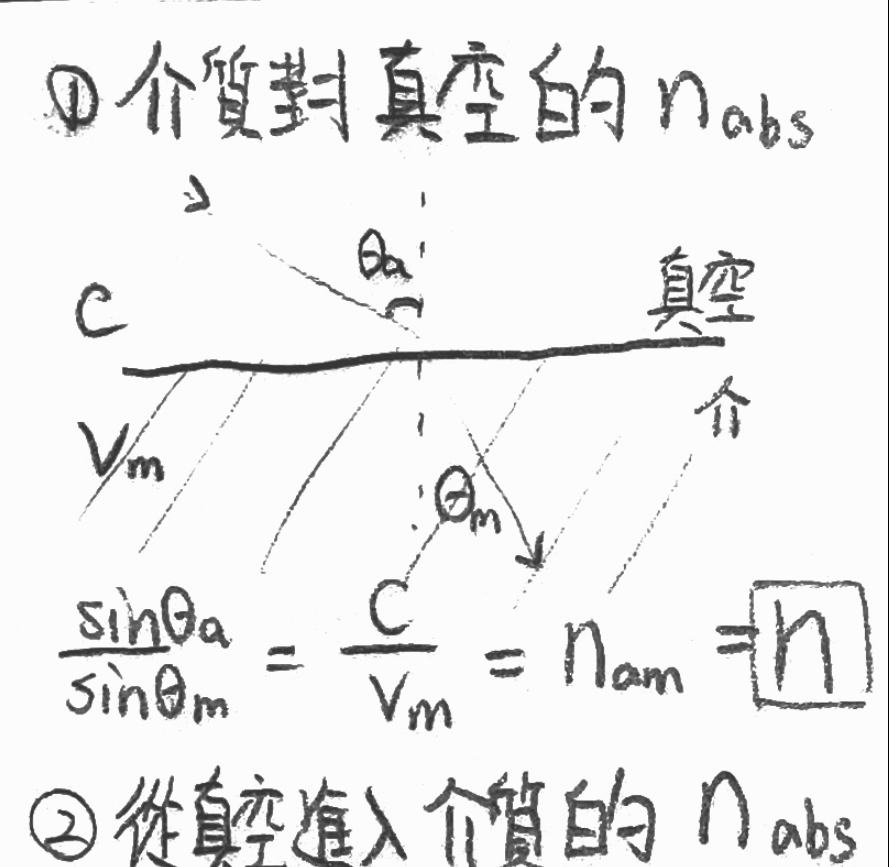 ① 介質對真空的 n_abs
θa
C 真空
Vm 介
θm
sinθa / sinθm = C / Vm = n_am = n
② 從真空進入介質的 n_abs